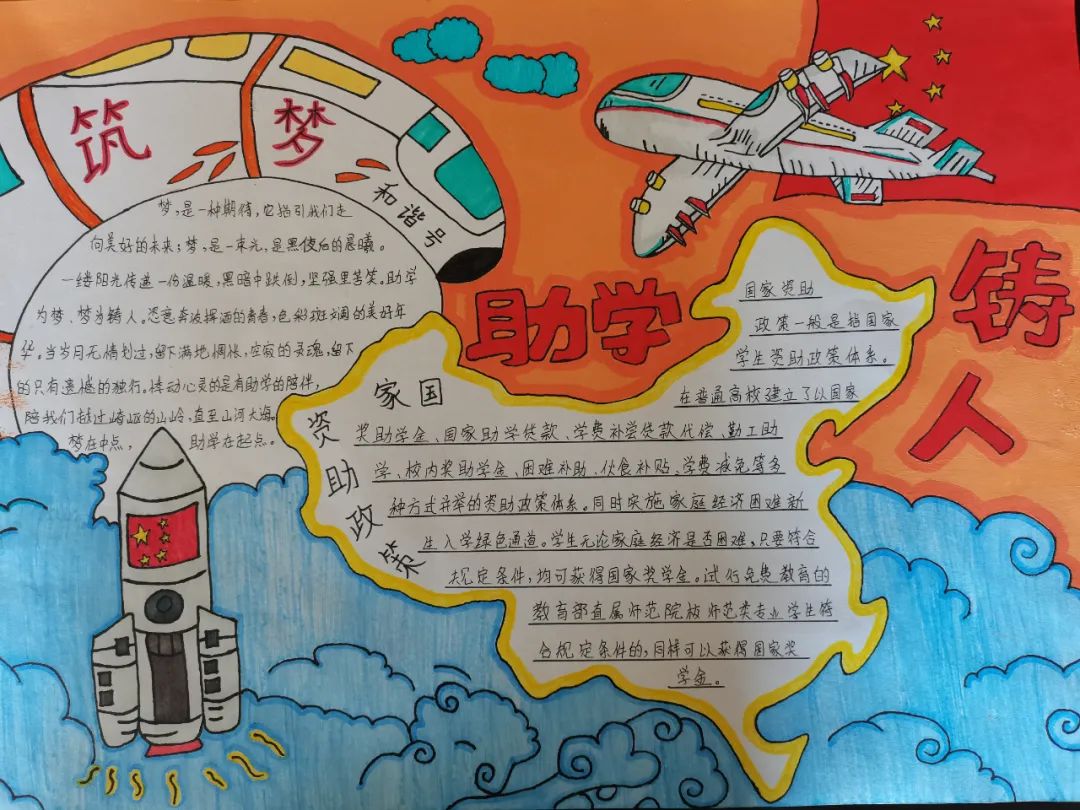 筑梦
和谐号
梦,是一种期待,它指引我们走
向美好的未来;梦,是一束光,是黑傻后的晨曦。
一缕阳光传递一份温暖,黑暗中跌倒,坚强里苦笑。助学
为梦、梦为铸人。恣意奔波挥洒的青春,色彩斑斓的美好年
华。当岁月无情划过,留下满地惆怅,空寂的灵魂,留下
的只有遗憾的独行。悸动心灵的是有助学的陪伴,
陪我们越过崎岖的山岭,直至山河大海。
梦在中点,助学在起点。
助学
铸人
国家
资助政策
国家资助
政策一般是指国家
学生资助政策体系。
在普通高校建立了以国家
奖助学金、国家助学贷款、学费补偿贷款代偿、勤工助
学、校内奖助学金、困难补助、伙食补贴、学费减免等多
种方式并举的资助政策体系。同时实施家庭经济困难新
生入学绿色通道。学生无论家庭经济是否困难,只要符合
规定条件,均可获得国家奖学金。试行免费教育的
教育部直属师范院校师范类专业学生符
合规定条件的,同样可以获得国家奖
学金。